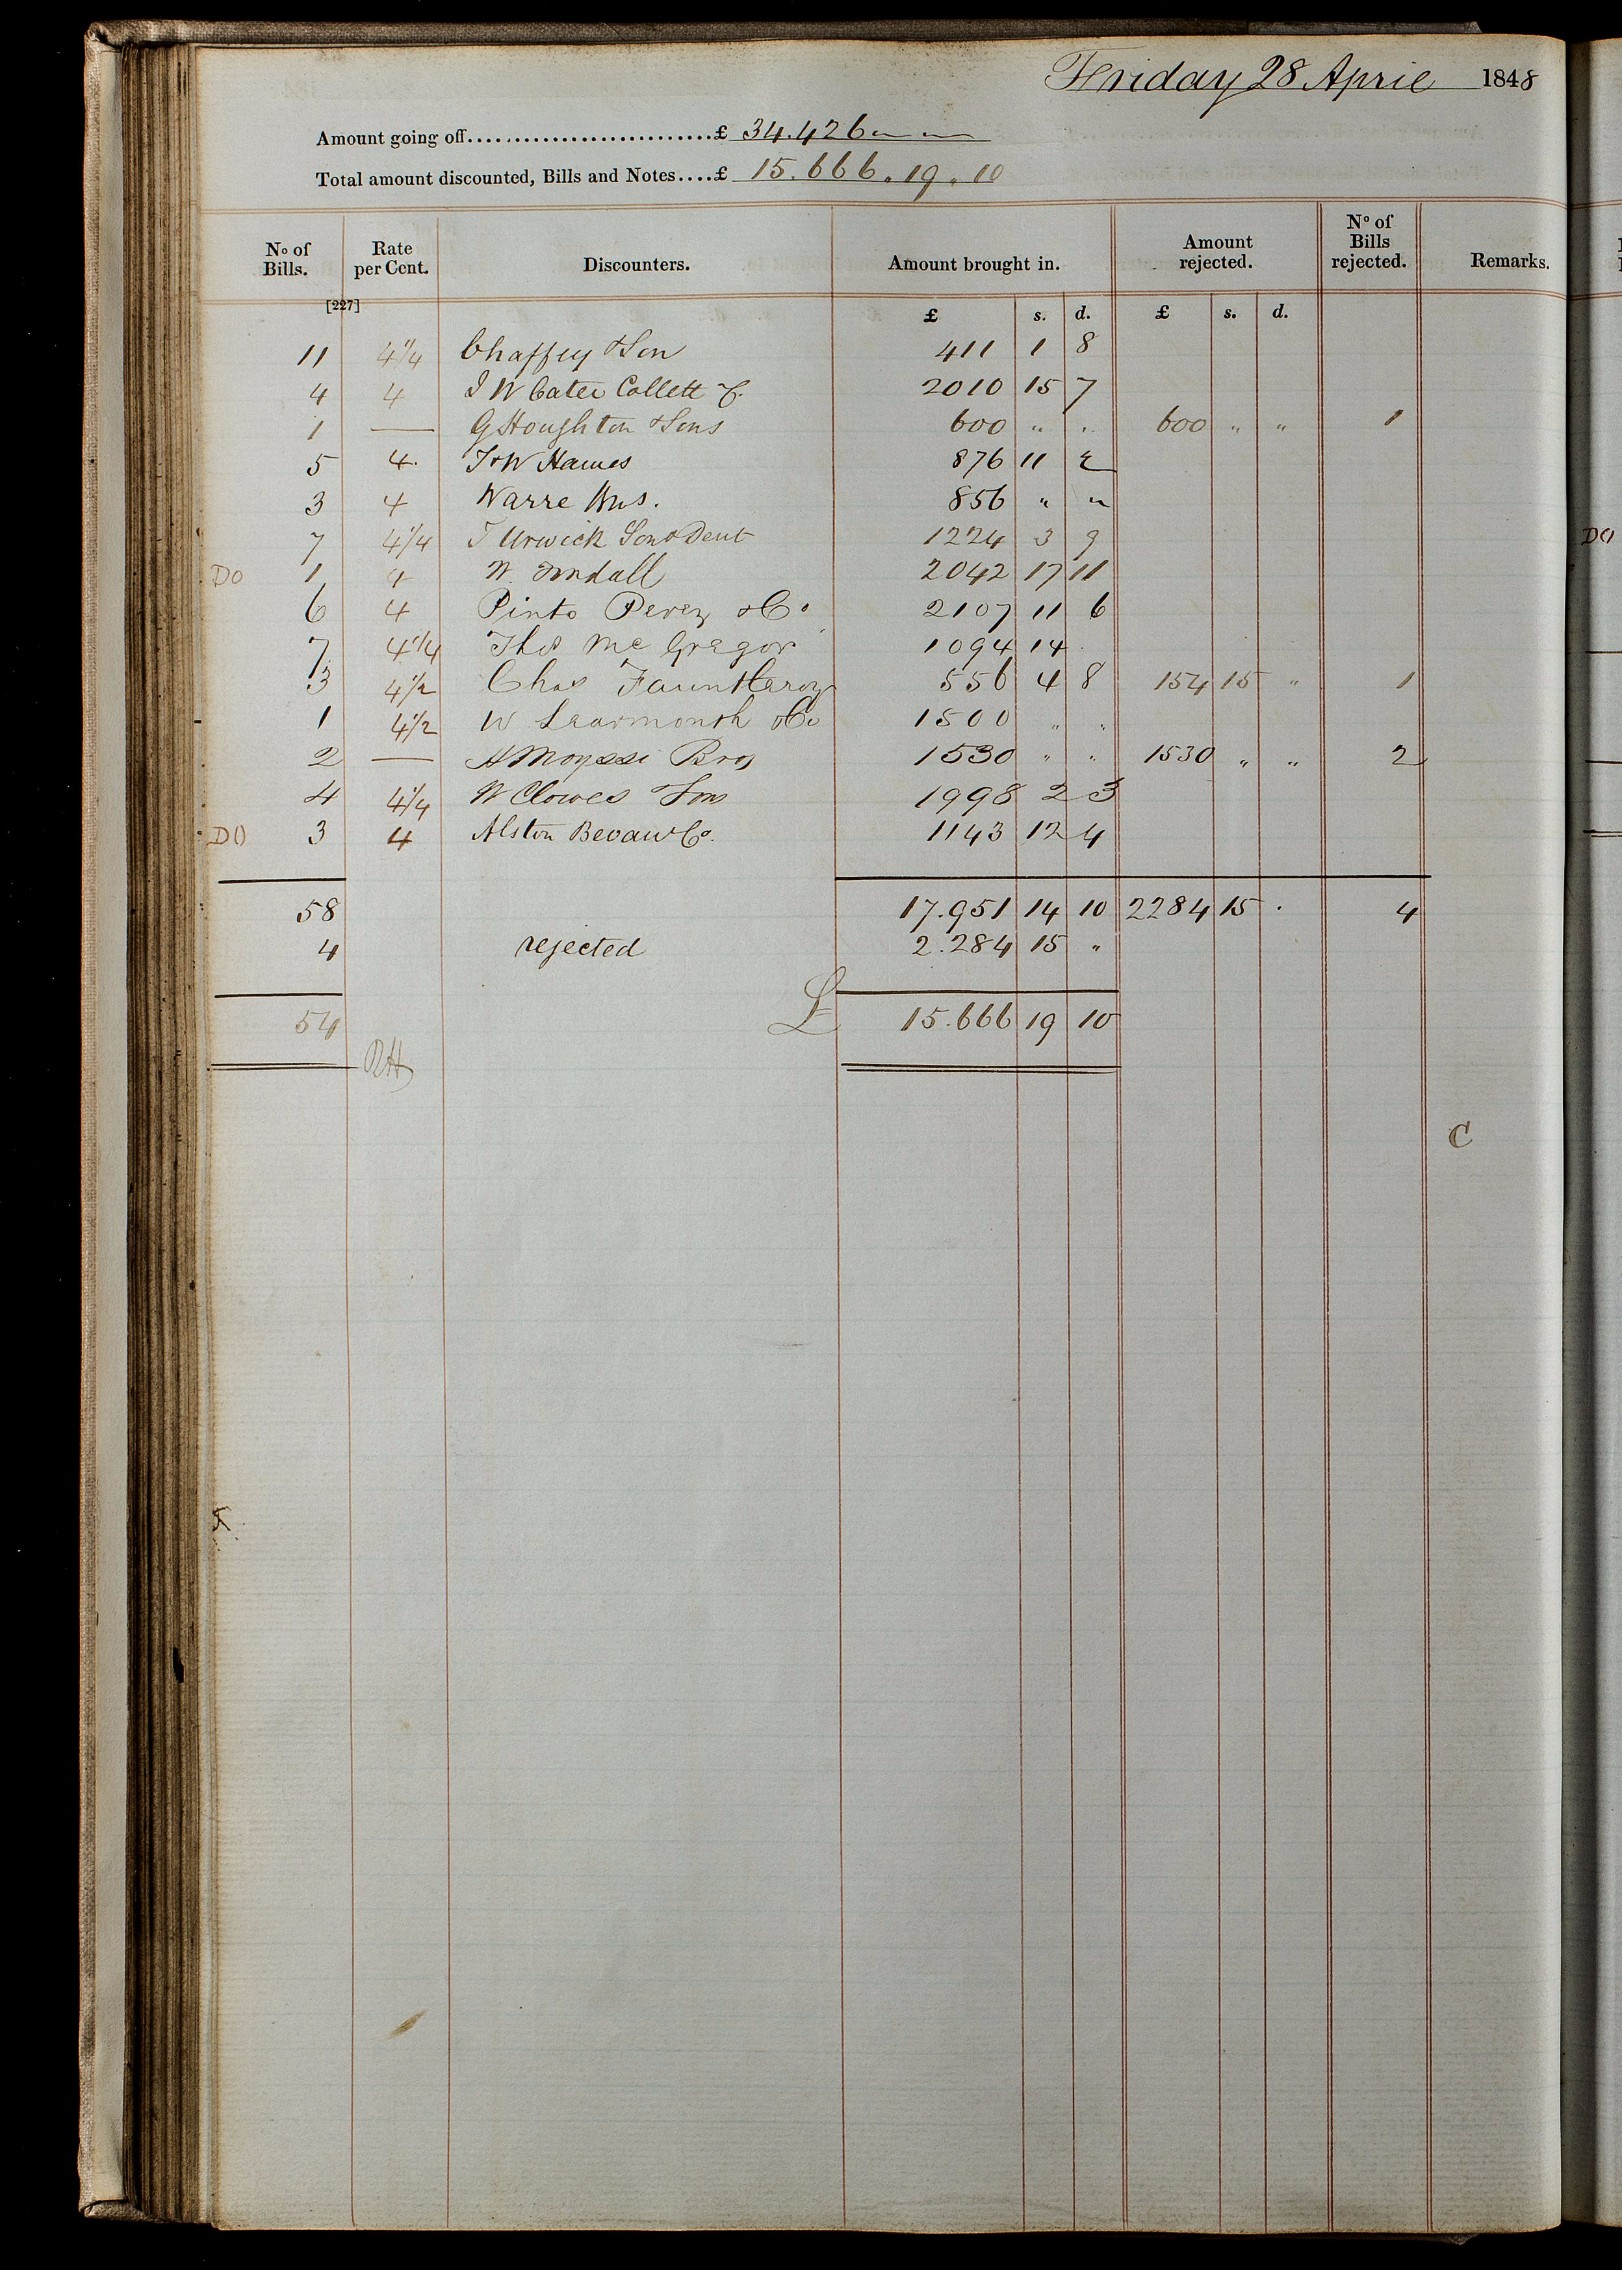 Friday 28 April 1848
Amount going off..........................£ 34.426 " "
Total amount discounted, Bills and Notes....£ 15.666.19.10
No of Bills. Rate per Cent. Discounters. Amount brought in. Amount rejected. No of Bills rejected. Remarks.
[227] £ s. d. £ s. d.
11 4 1/4 Chaffey & Son 411 1 8
4 4 J W Cater Collett & C. 2010 15 7
1 — G Houghton & Sons 600 " " 600 " " 1
5 4 T & W Hawes 876 11 2
3 4 Warre Bros. 856 " "
7 4 1/4 T Urwick Son & Dent 1224 3 9
DO 1 4 W. Tindall 2042 17 11
6 4 Pinto Perez & Co 2107 11 6
7 4 1/4 Thos McGregor 1094 14 .
3 4 1/2 Chas Fauntleroy 556 4 8 154 15 " 1
1 4 1/2 W Learmonth & Co 1500 " "
2 — A Moyssi Bros 1530 " " 1530 " " 2
4 4 1/4 W Clowes & Sons 1998 2 3
DO 3 4 Alston Bevan & Co. 1143 12 4
58 17.951 14 10 2284 15 . 4
4 rejected 2.284 15 "
54 £ 15.666 19 10
RH
C
DO